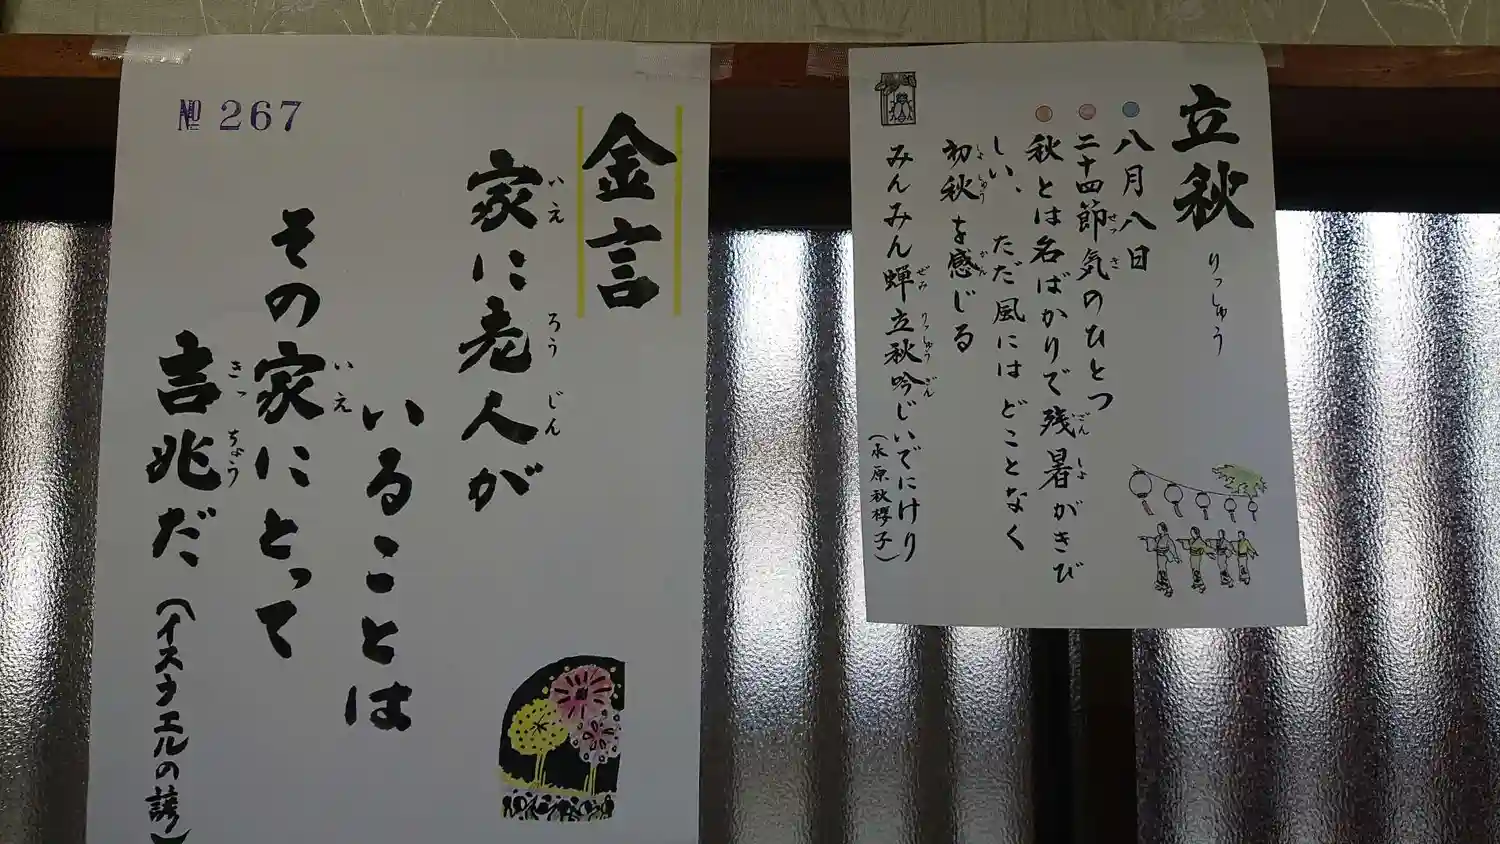 立秋
りっしゅう
八月八日
二十四節気のひとつ
せっき
秋とは名ばかりで残暑がきび
ざんしょ
しい、ただ風にはどことなく
初秋を感じる
しょしゅう
かん
みんみん蟬立秋吟じいでにけり
ぜみ
りっしゅうぎん
(水原秋櫻子)
№ 267
金言
家に老人が
いえ
ろうじん
いることは
その家にとって
いえ
吉兆だ
きっちょう
(イスラエルの諺)